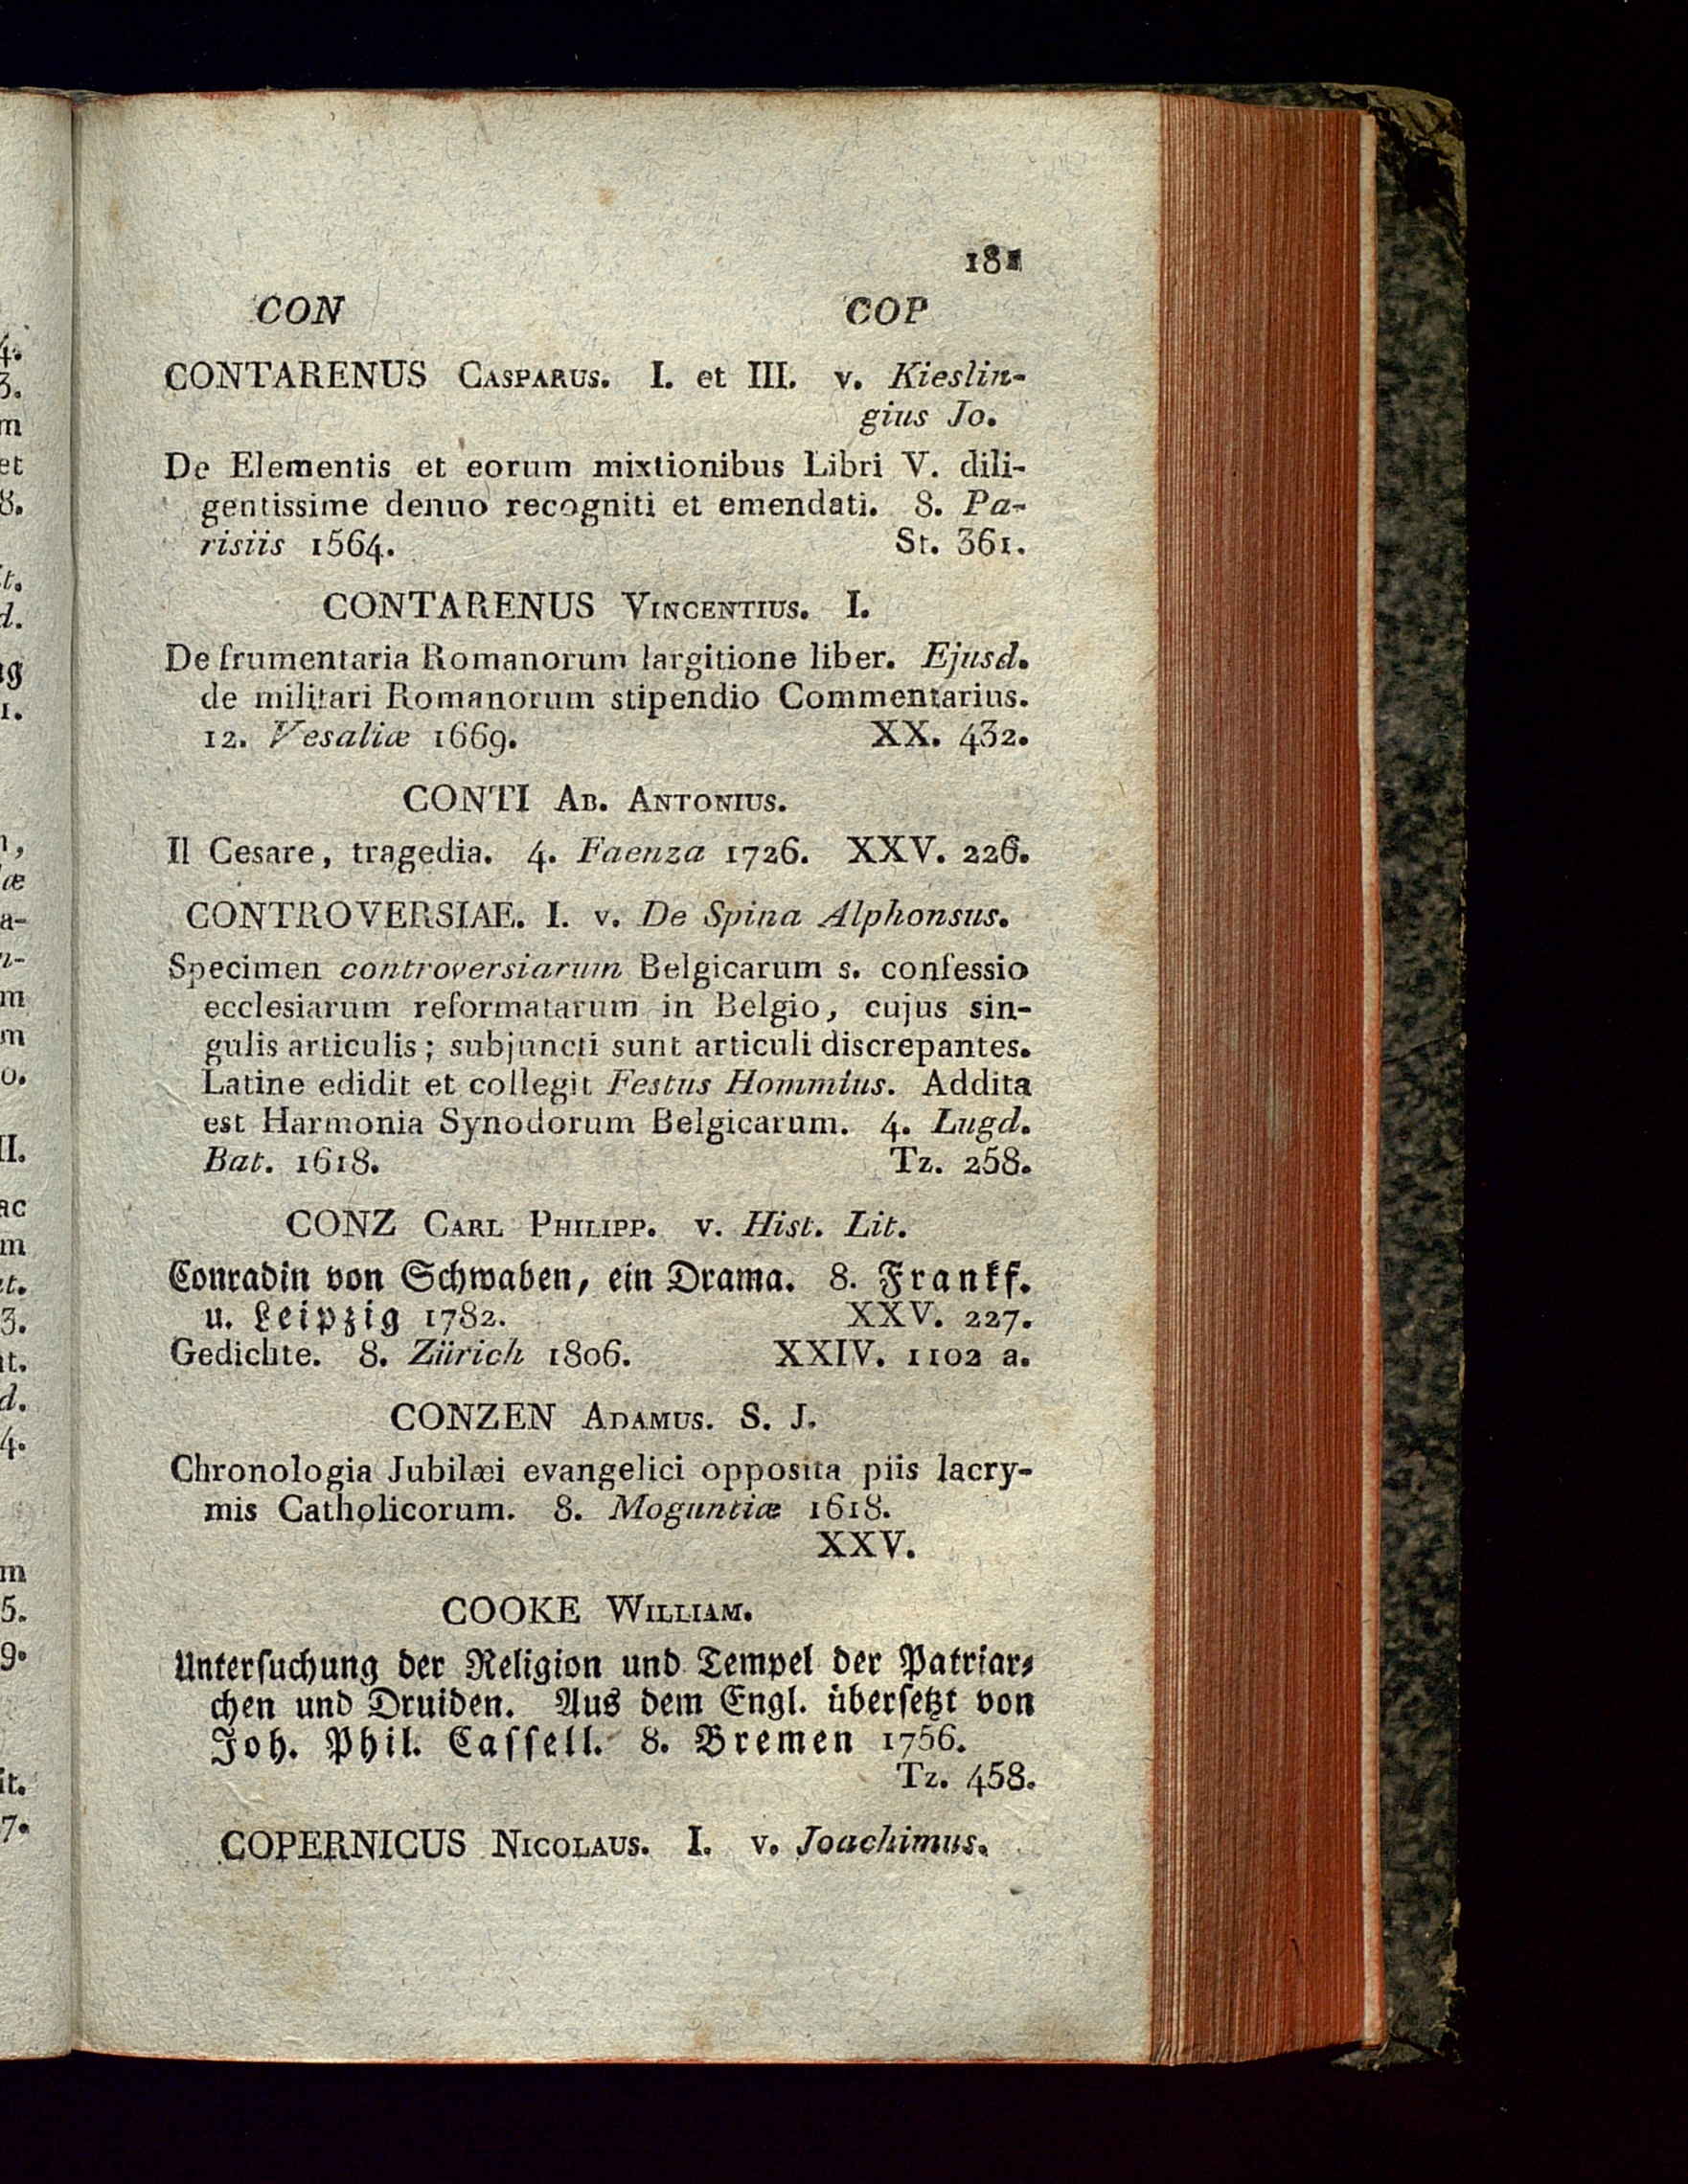 181
CON COP
CONTARENUS CASPARUS. I. et III. v. Kieslin-
gius Jo.
De Elementis et eorum mixtionibus Libri V. dili-
gentissime denuo recogniti et emendati. 8. Pa-
risiis 1564. St. 361.
CONTARENUS VINCENTIUS. I.
De frumentaria Romanorum largitione liber. Ejusd.
de militari Romanorum stipendio Commentarius.
12. Vesaliæ 1669. XX. 432.
CONTI AB. ANTONIUS.
Il Cesare, tragedia. 4. Faenza 1726. XXV. 226.
CONTROVERSIAE. I. v. De Spina Alphonsus.
Specimen controversiarum Belgicarum s. confessio
ecclesiarum reformatarum in Belgio, cujus sin-
gulis articulis; subjuncti sunt articuli discrepantes.
Latine edidit et collegit Festus Hommius. Addita
est Harmonia Synodorum Belgicarum. 4. Lugd.
Bat. 1618. Tz. 258.
CONZ CARL PHILIPP. v. Hist. Lit.
Conradin von Schwaben, ein Drama. 8. Frankf.
u. Leipzig 1782. XXV. 227.
Gedichte. 8. Zürich 1806. XXIV. 1102 a.
CONZEN ADAMUS. S. J.
Chronologia Jubilæi evangelici opposita piis lacry-
mis Catholicorum. 8. Moguntiæ 1618.
XXV.
COOKE WILLIAM.
Untersuchung der Religion und Tempel der Patriar-
chen und Druiden. Aus dem Engl. übersetzt von
Joh. Phil. Cassell. 8. Bremen 1756.
Tz. 458.
COPERNICUS NICOLAUS. I. v. Joachimus.